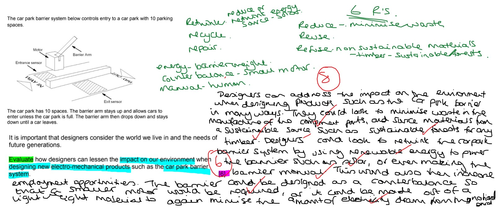 The car park barrier system below controls entry to a car park with 10 parking spaces.
Motor
Barrier arm
Entrance sensor
Exit sensor
The car park has 10 spaces. The barrier arm stays up and allows cars to
enter unless the car park is full. The barrier arm then drops down and stays
down until a car leaves.
It is important that designers consider the world we live in and the needs of
future generations.
Evaluate how designers can lessen the impact on our environment when
designing new electro-mechanical products such as the car park barrier
system
reduce of
energy
recycle.
repair.
energy - barrier weight
counter balance - small motor.
manual - human.
6 R's.
Reduce - minimise waste
Reuse.
Refuse non sustainable materials
- timber - sustainable forests.
8
Designers can address the impact on the environment
when designing products such as the car park barrier
in many ways. They could look to minimise waste in the
manufacture of the component parts, and source materials from
a sustainable source such as sustainable forests for any
timber. Designers could look to rethink the car park
barrier system by using renewable energy to power
the barrier such as solar, or even making the
barrier manual. This would also then increase
employment opportunities. The barrier could be designed as a counterbalance so
that a smaller motor would be required, or it could be made out of a
lightweight material to again minimise the amount of electricity drawn from the national